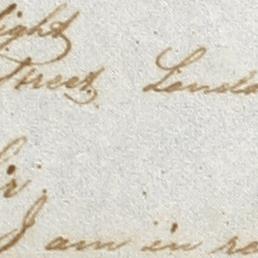 Street, London
Sir.
I am in re